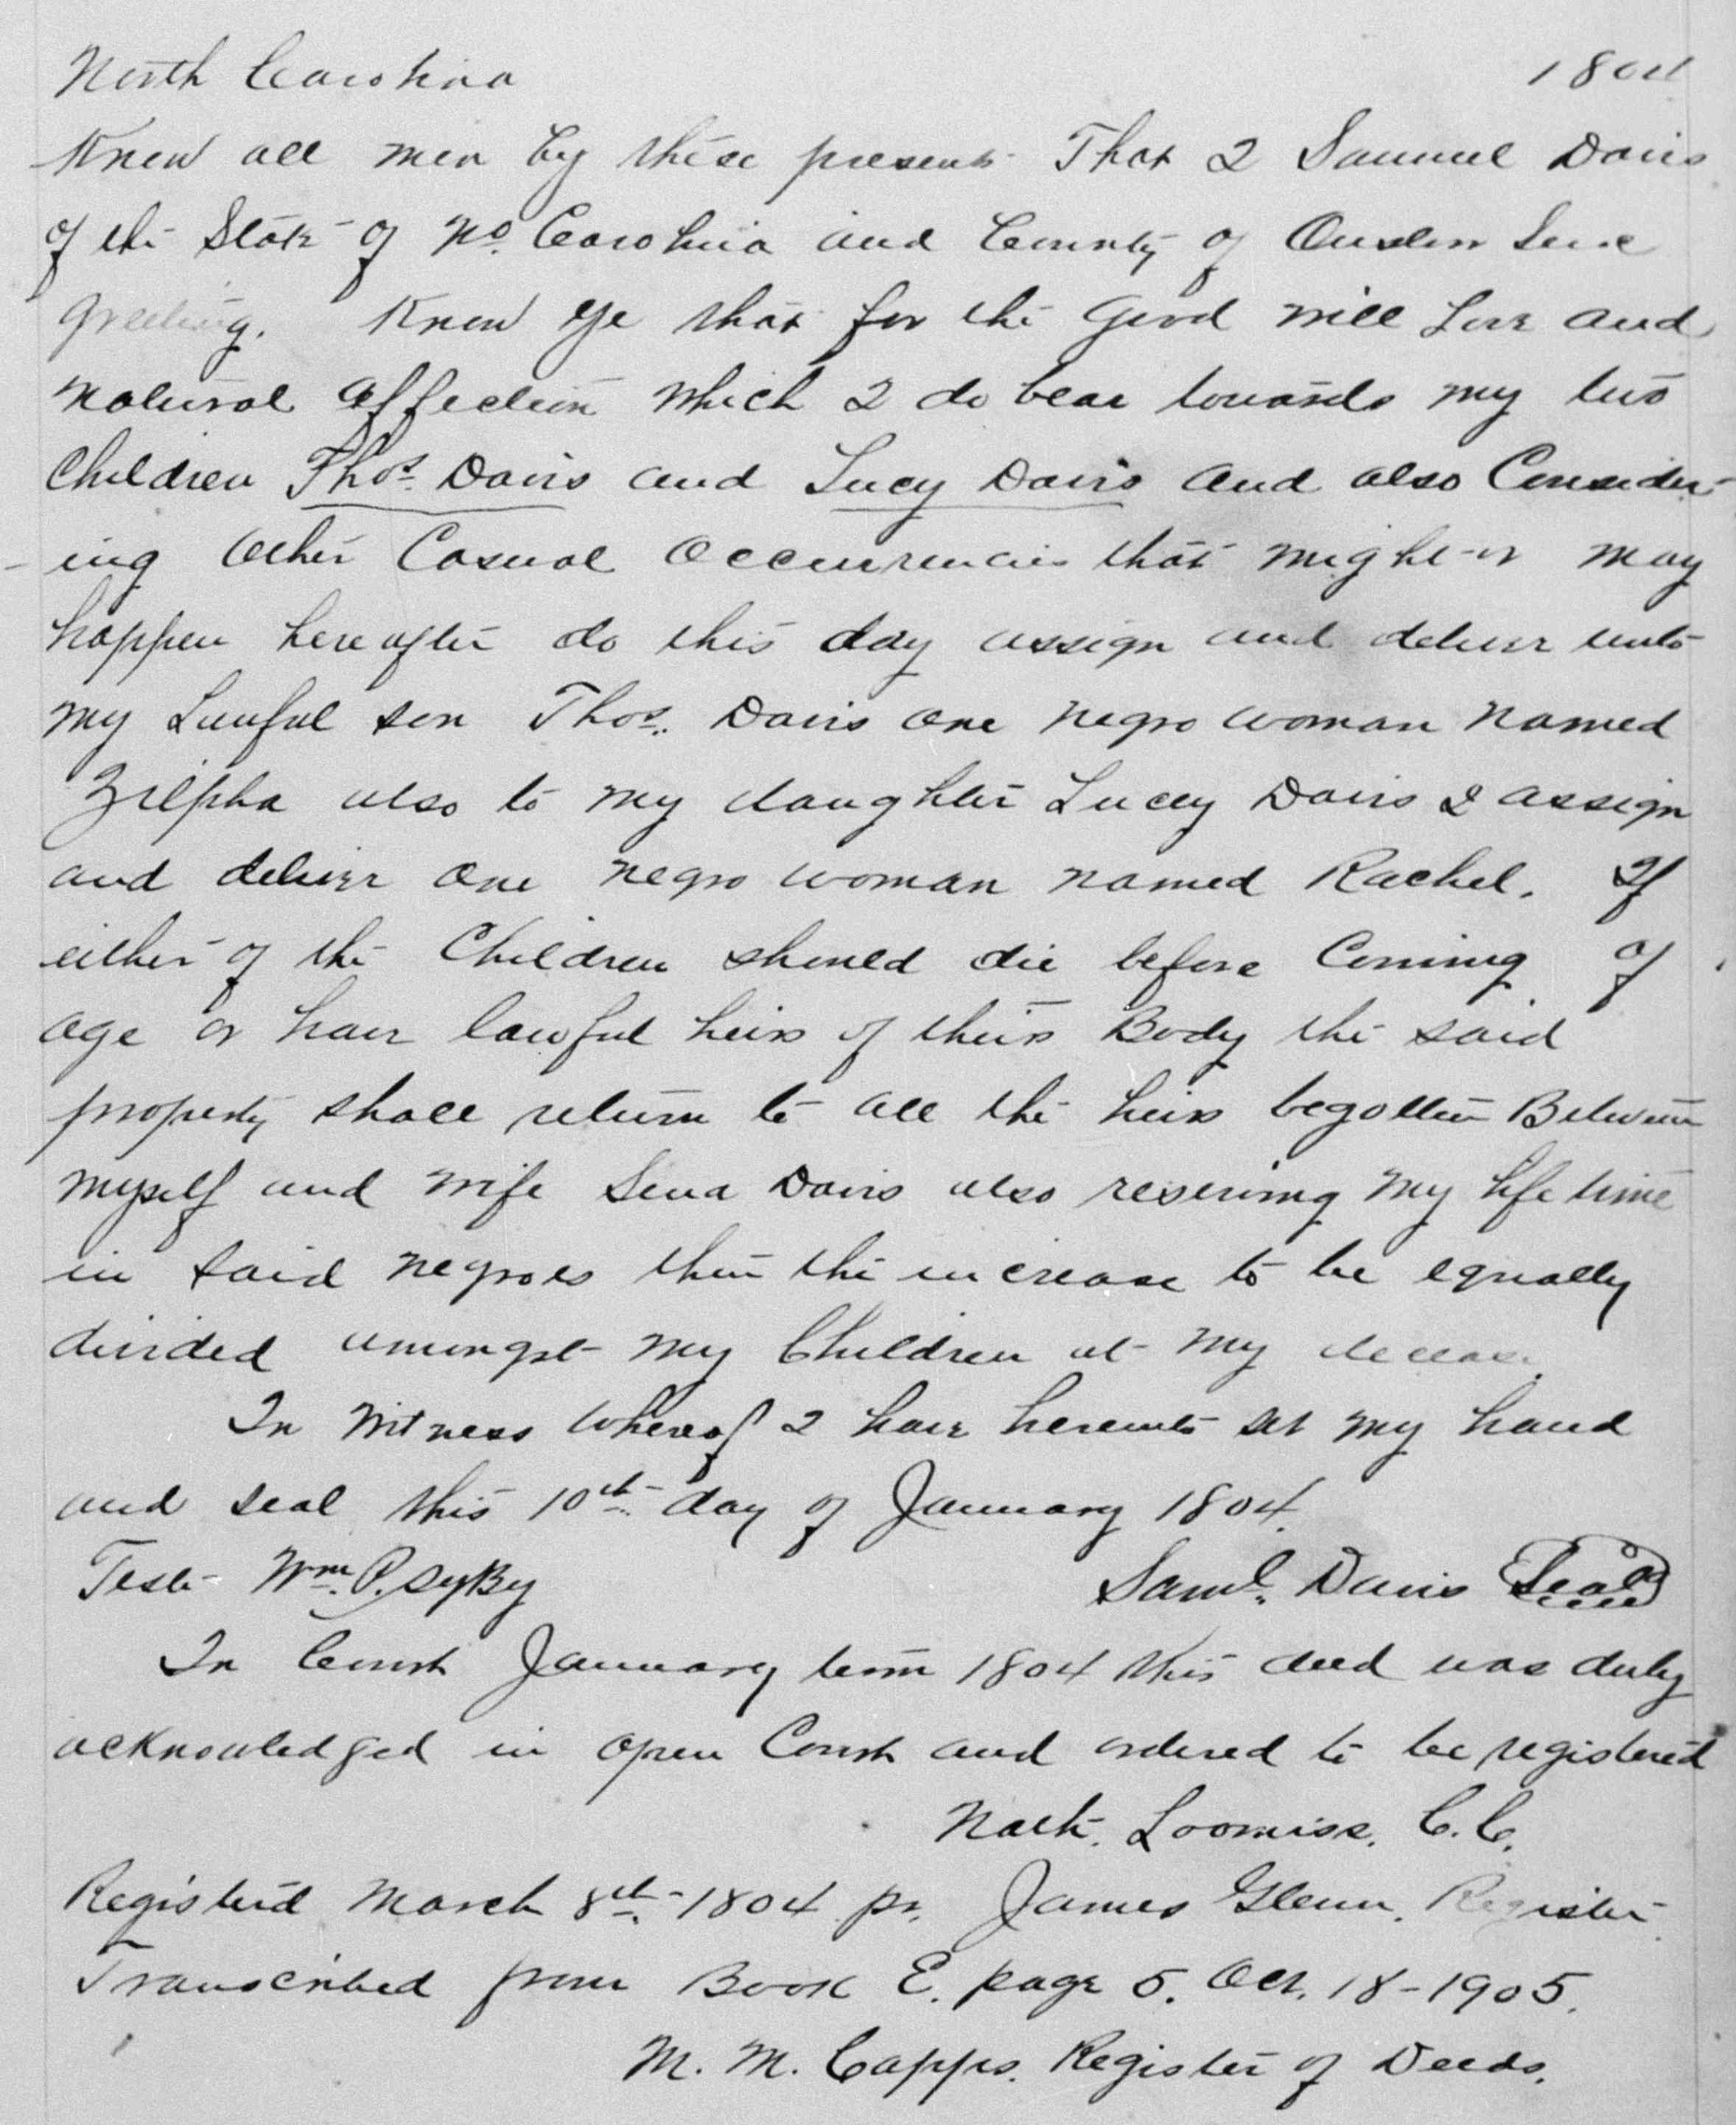 North Carolina 1804
Know all men by these presents That I Samuel Davis
of the State of No. Carolina and County of Onslow Send
greeting. Know ye that for the Good will Love and
natural affection which I do bear towards my two
Children Thos. Davis and Lucy Davis and also Consider-
-ing Other Casual Occurrencies that might or may
happen hereafter do this day assign and deliver unto
my Lawful son Thos. Davis one negro woman named
Zilpha also to my daughter Lucey Davis I assign
and deliver one negro woman named Rachel. If
either of the Children should die before Coming of
age or have lawful heirs of their Body the said
property shall return to all the heirs begotten Between
myself and wife Sena Davis also reserving my life time
in said negroes then the increase to be equally
divided amongst my Children at my decease.
In Witness Whereof I have hereunto set my hand
and seal this 10th day of January 1804.
Test Wm. P. Saml. Davis Seal
In Court January term 1804 this deed was duly
acknowledged in open Court and ordered to be registered
Nath. Loomiss. C.C.
Registerd March 8th 1804 pr. James Glenn. Register
Transcribed from Book E. page 5. Oct. 18-1905.
M. M. Capps. Register of Deeds.